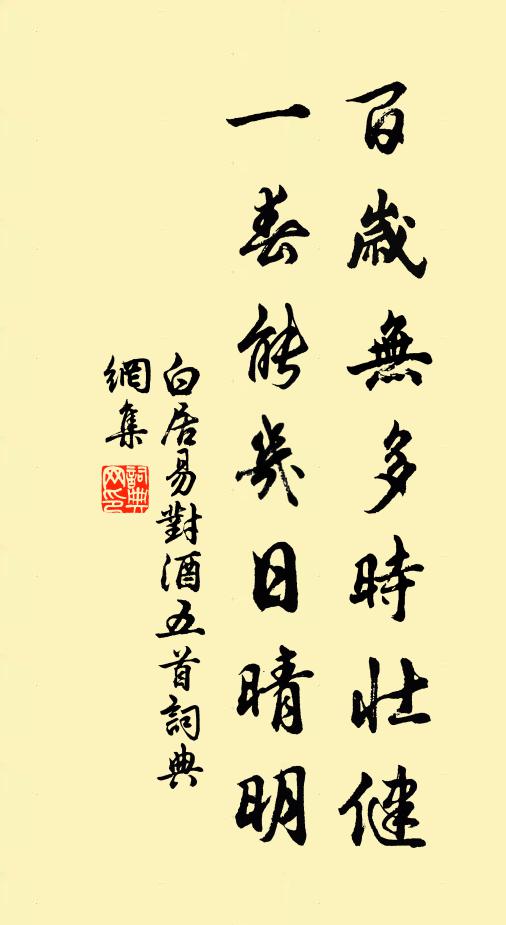 百歲無多時壯健
一春能幾日晴明
白居易對酒五首詞典
網集
詞典
网印